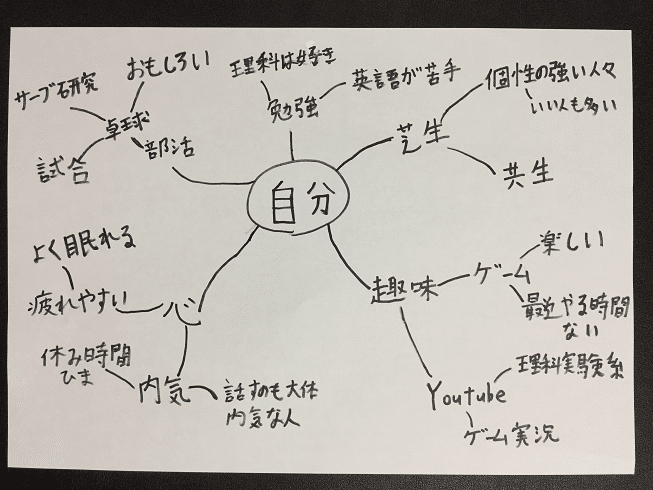 おもしろい
理科は好き
サーブ研究
英語が苦手
個性の強い人々
いい人も多い
卓球
勉強
芝生
試合
部活
共生
自分
よく眠れる
楽しい
疲れやすい
心
趣味
ゲーム
最近やる時間
ない
休み時間
ひま
内気
話すのも大体
内気な人
理科実験系
Youtube
ゲーム実況